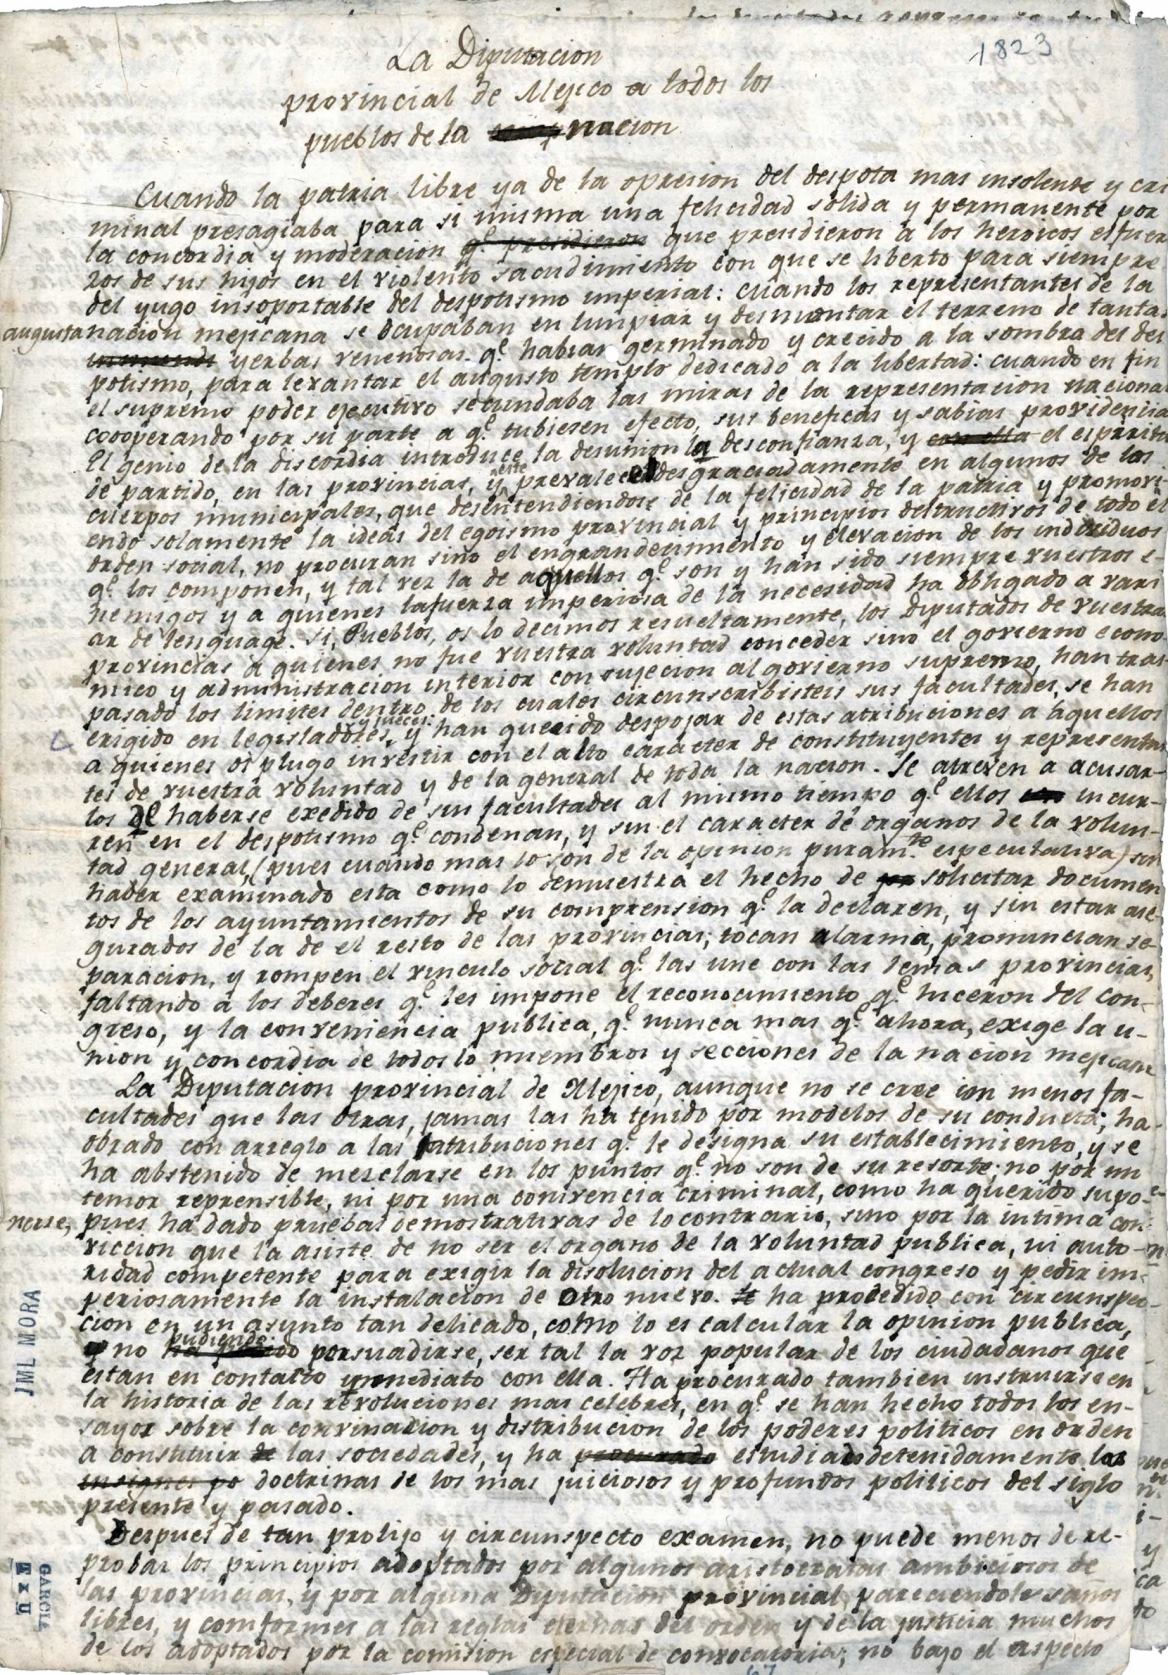 1823
La Diputacion
provincial de Mejico a todos los
pueblos de la nacion
Cuando la patria libre ya de la opresion del despota mas insolente y cri
minal presagiaba para si misma una felicidad solida y permanente por
la concordia y moderacion q.e presidieron que presidieron a los heroicos esfuer
zos de sus hijos en el violento sacudimiento con que se liberto para siempre
del yugo insoportable del despotismo imperial: cuando los representantes de la
augusta nacion mejicana se ocupaban en limpiar y desmontar el terreno de tantas
yerbas venenosas q.e habian germinado y crecido a la sombra del des
potismo, para levantar el augusto templo dedicado a la libertad: cuando en fin
el supremo poder ejecutivo secundaba las miras de la representacion nacional
cooperando por su parte a q.e tubiesen efecto, sus beneficas y sabias providencias
El genio de la discordia introduce la desunion la desconfianza, y con ella el espiritu
de partido, en las provincias, y este prevalece desgraciadamente en algunos de los
cuerpos municipales, que desentendiendose de la felicidad de la patria y promovi-
endo solamente la ideas del egoismo provincial y principios destructivos de todo el
orden social, no procuran sino el engrandecimiento y elevacion de los individuos
q.e los componen, y tal vez la de aquellos q.e son y han sido siempre vuestros e-
nemigos y a quienes la fuerza imperiosa de la necesidad ha obligado a vari
ar de lenguage. Si, Pueblos, os lo decimos resueltamente, los Diputados de vuestra
provincias a quienes no fue vuestra voluntad conceder sino el govierno econo
mico y administracion interior con sujecion al govierno supremo, han tras
pasado los limites dentro de los cuales circunscribisteis sus facultades, se han
erigido en legisladores, y jueces: y han querido despojar de estas atribuciones a aquellos
a quienes os plugo investir con el alto caracter de constituyentes y representan
tes de vuestra voluntad y de la general de toda la nacion. Se atreven a acusar-
los de haberse exedido de sus facultades al mismo tiempo q.e ellos incur-
ren en el despotismo q.e condenan, y sin el caracter de organos de la volun-
tad general, (pues cuando mas lo son de la opinion puram.te especulativa) sin
haber examinado esta como lo demuestra el hecho de solicitar documen
tos de los ayuntamientos de su comprension q.e la declaren, y sin estar ase-
gurados de la de el resto de las provincias; tocan alarma, pronuncian se-
paracion, y rompen el vinculo social q.e las une con las demas provincias,
faltando a los deberes q.e les impone el reconocimiento q.e hiceron del con-
greso, y la conveniencia publica, q.e nunca mas q.e ahora, exige la u-
nion y concordia de todos lo miembros y secciones de la nacion mejicana
La Diputacion provincial de Mejico, aunque no se cree con menos fa-
cultades que las otras, jamas las ha tenido por modelos de su conducta; ha
obrado con arreglo a las atribuciones q.e le designa su establecimiento, y se
ha abstenido de mezclarse en los puntos q.e no son de su resorte; no por un
temor reprensible, ni por una conivencia criminal, como ha querido supo-
nerse, pues ha dado pruebas demostrativas de lo contrario, sino por la intima con
viccion que la asiste de no ser el organo de la voluntad publica, ni auto-
ridad competente para exigir la disolucion del actual congreso y pedir im-
periosamente la instalacion de otro nuevo. ha procedido con circunspec-
cion en un asunto tan delicado, como lo es calcular la opinion publica,
no pudiendo persuadirse, ser tal la voz popular de los ciudadanos que
estan en contacto ynmediato con ella. Ha procurado tambien instruirse en
la historia de las revoluciones mas celebres, en q.e se han hecho todos los en-
sayos sobre la convinacion y distribucion de los poderes politicos en orden
a constituir de las sociedades, y ha procurado estudiado detenidamente las
insignes po doctrinas de los mas juiciosos y profundos politicos del siglo
presente y pasado.
Despues de tan prolijo y circunspecto examen, no puede menos de re-
probar los principios adoptados por algunos aristocratas ambiciosos de
las provincias, y por alguna Diputacion provincial pareciendole sanos
libres, y conformes a las reglas eternas del orden y de la justicia muchos
de los adoptados por la comision especial de convocatoria; no bajo el aspecto
JML MORA
GARCIA